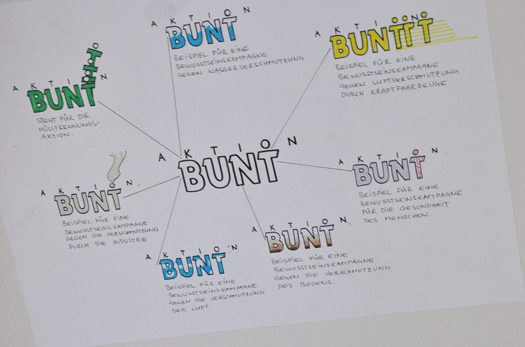 AKTION
BUNT
BEISPIEL FÜR EINE
BEWUSSTSEINSKAMPAGNE
GEGEN WASSERVERSCHMUTZUNG
AKTION
BUNTTTT
BEISPIEL FÜR EINE
BEWUSSTSEINSKAMPAGNE
GEGEN LUFTVERSCHMUTZUNG
DURCH KRAFTFAHRZEUGE
AKTION
BUNT
STEHT FÜR DIE
MÜLLTRENNUNGS-
AKTION.
AKTION
BUNT
AKTION
BUNT
BEISPIEL FÜR EINE
BEWUSSTSEINSKAMPAGNE
FÜR DIE GESUNDHEIT
DES MENSCHEN.
AKTION
BUNT
BEISPIEL FÜR EINE
BEWUSSTSEINSKAMPAGNE
GEGEN DIE VERSCHMUTZUNG
DURCH DIE INDUSTRIE
AKTION
BUNT
BEISPIEL FÜR EINE
BEWUSSTSEINSKAMPAGNE
GEGEN DIE VERSCHMUTZUNG
DES BODENS.
AKTION
BUNT
BEISPIEL FÜR EINE
BEWUSSTSEINSKAMPAGNE
GEGEN DIE VERSCHMUTZUNG
DER LUFT